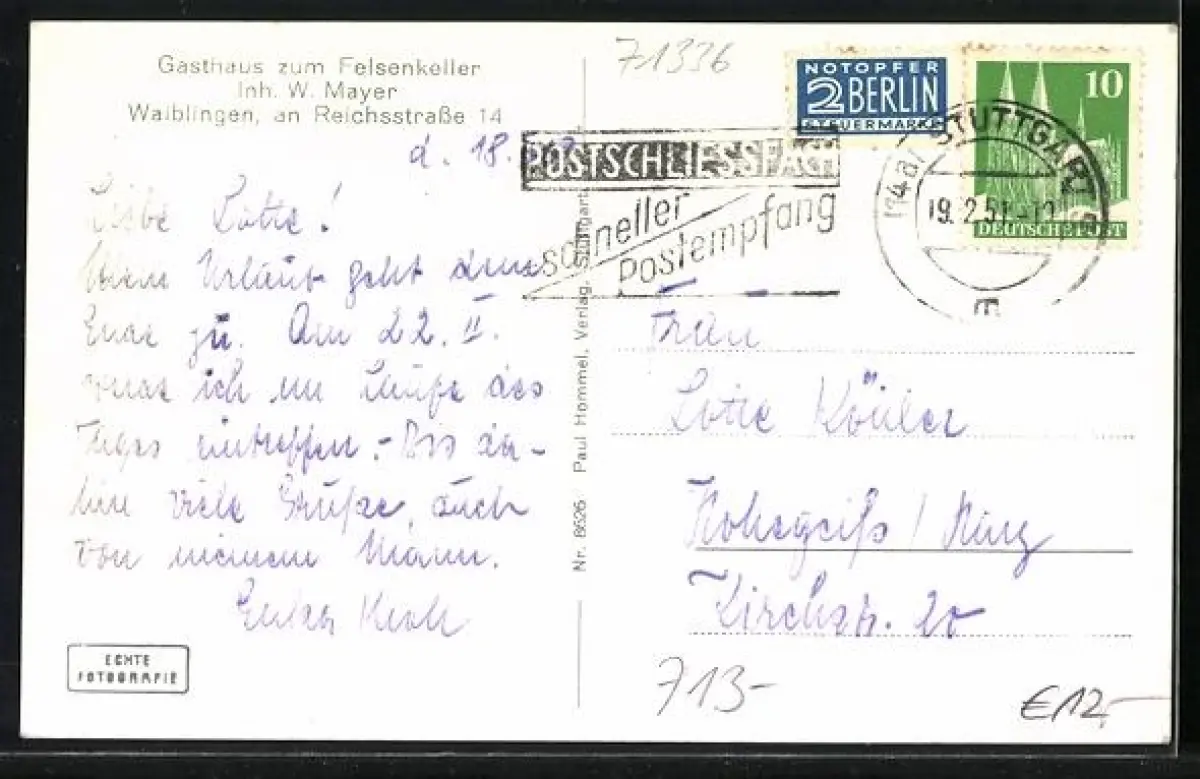 Gasthaus zum Felsenkeller
Inh. W. Mayer
Waiblingen, an Reichsstraße 14
d. 18.
Liebe Lotte!
Mein Urlaub geht dem
Ende zu. Am 22. II.
werde ich im Laufe des
Tages eintreffen. - Bis da-
hin viele Grüße, auch
von meinem Mann.
ECHTE
FOTOGRAFIE
Nr. 8626 Paul Hommel, Verlag, Stuttgart
71336
NOTOPFER
2 BERLIN
STEUERMARKE
10
DEUTSCHE POST
(14a) STUTTGART 9
19.2.51.-12
E
POSTSCHLIESSFACH
schneller
Postempfang
Frau
Lotte Köhler
Hohegeiß / Harz
Kirchstr. 20
713-
€12,-